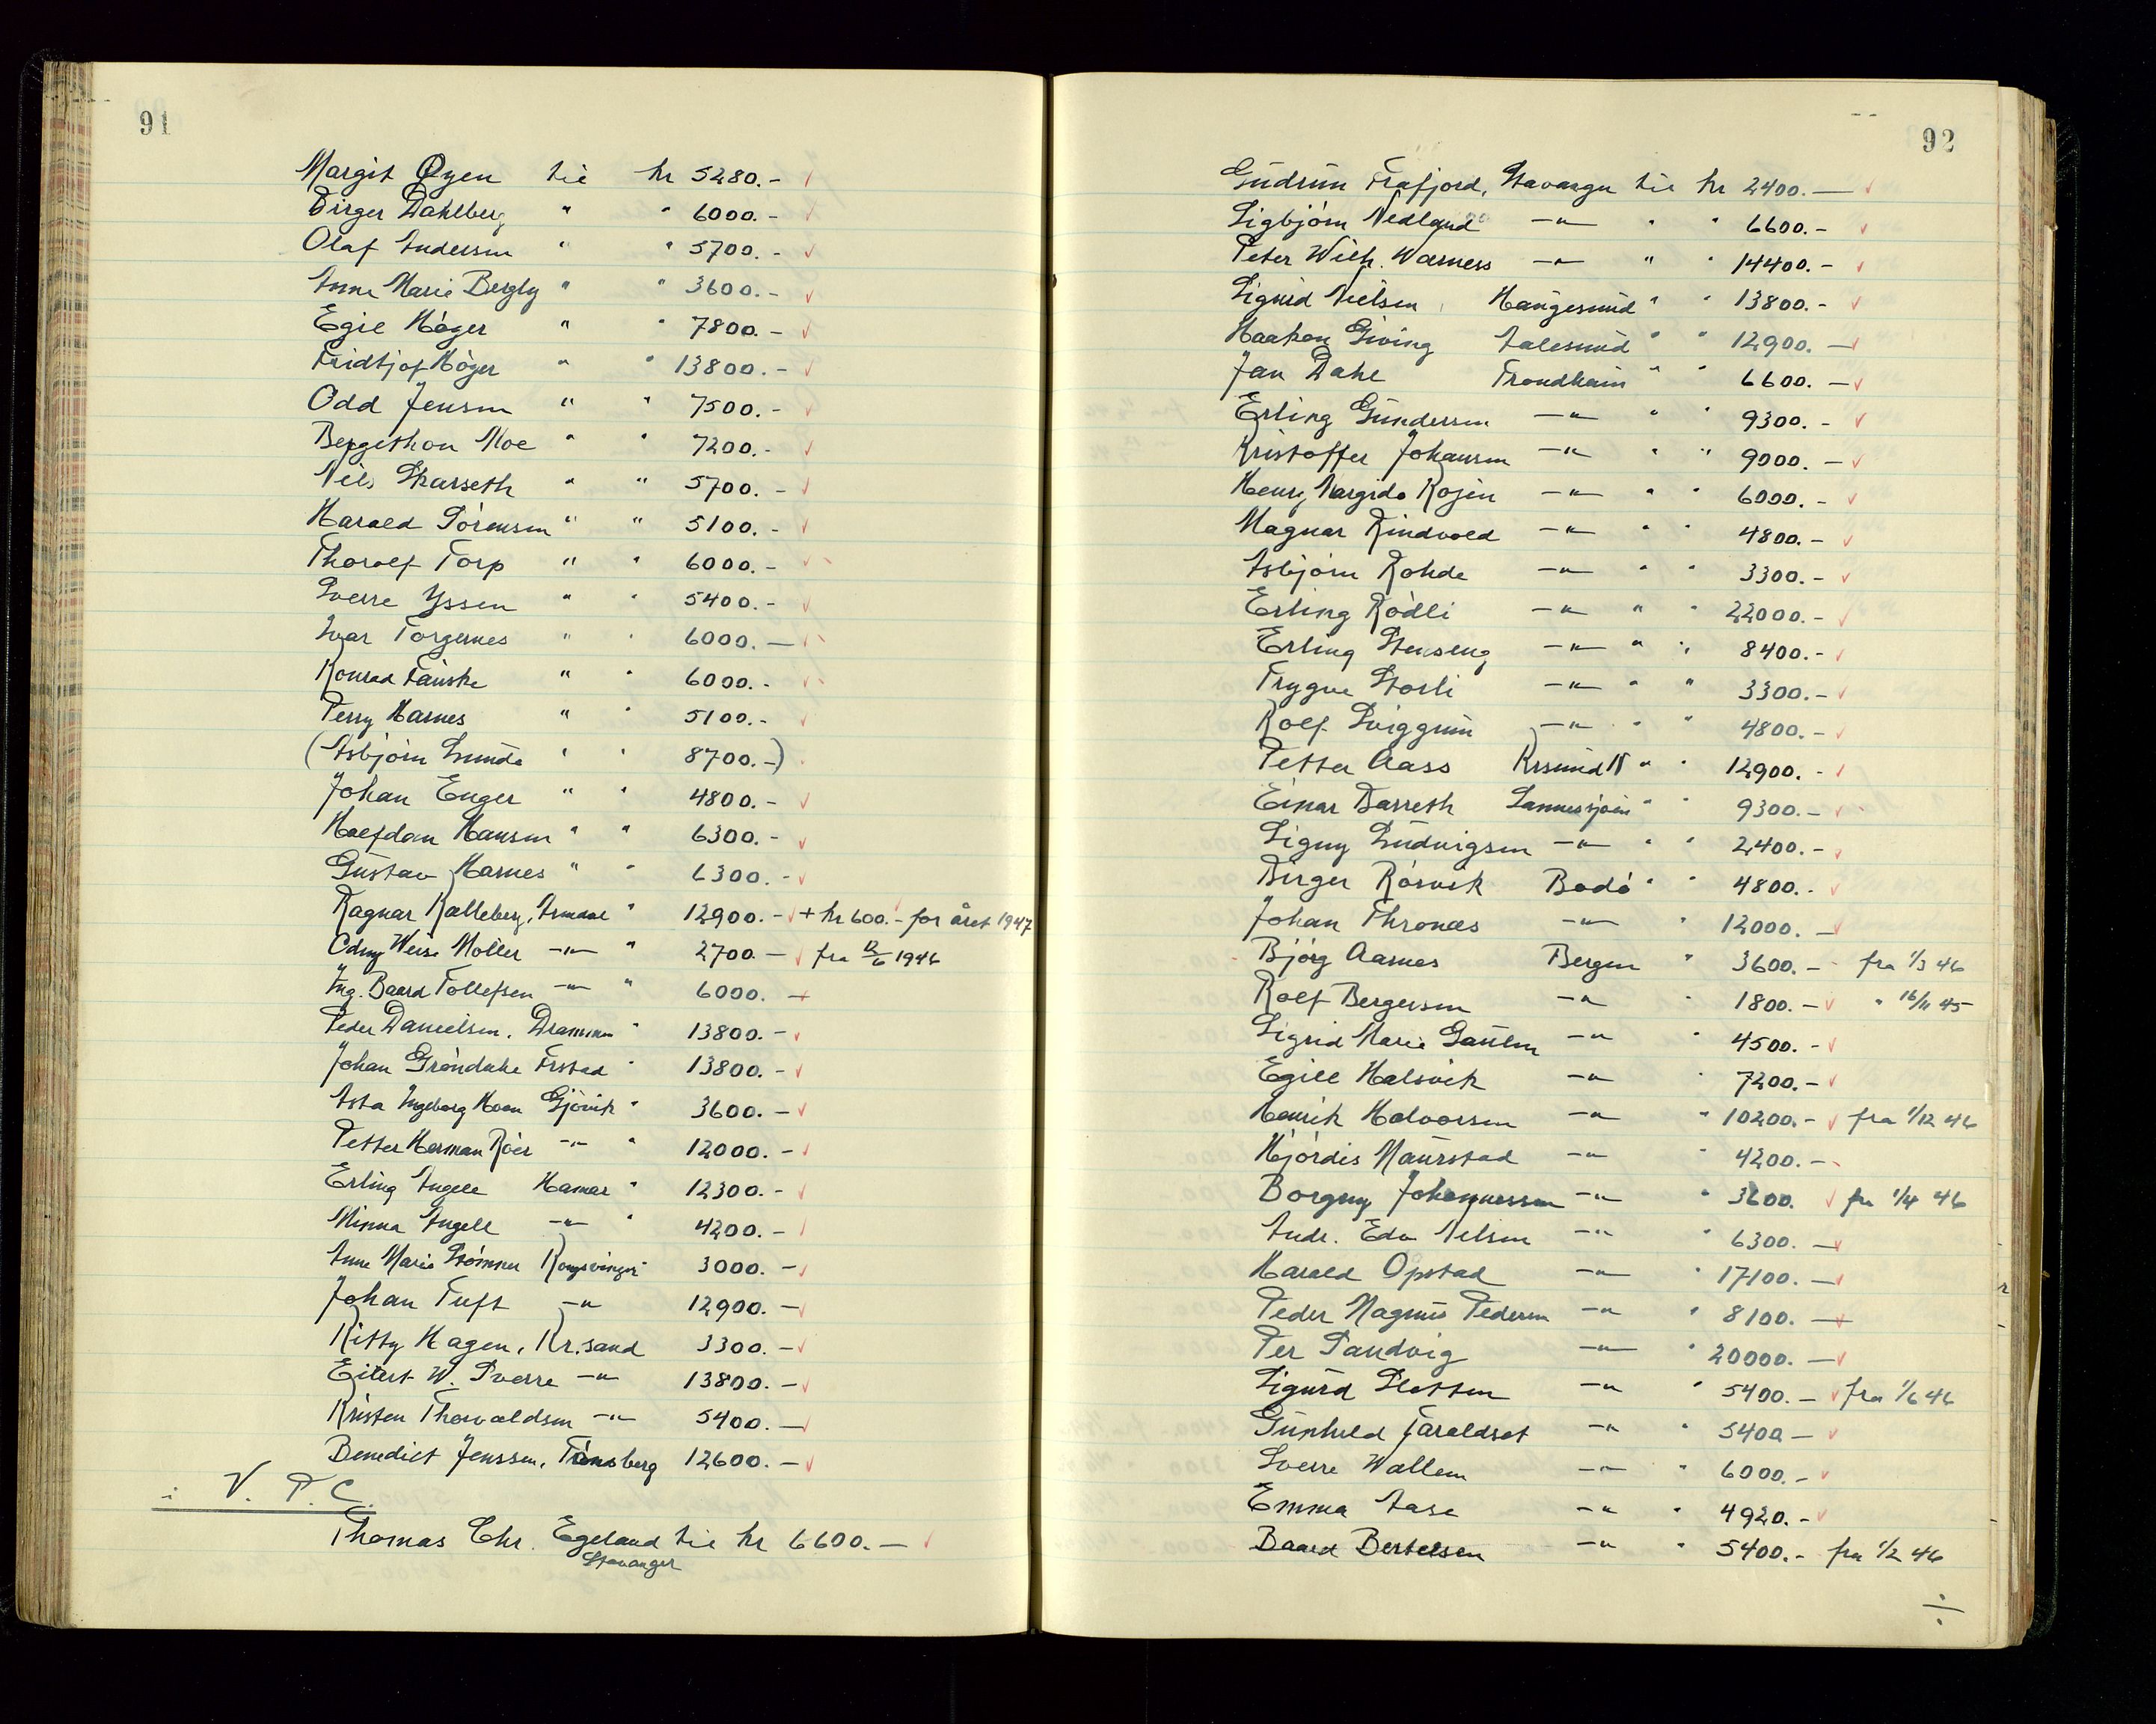 91
Margit Øyen til kr 5280.-
Birger Dahlberg " " 6000.-
Olaf Andersen " " 5700.-
Anne Marie Bergly " " 3600.-
Egil Høyer " " 7800.-
Fridtjof Høyer " " 13800.-
Odd Jensen " " 7500.-
Bergithon Moe " " 7200.-
Nils Skarseth " " 5700.-
Harald Sörensen " " 5100.-
Thorolf Torp " " 6000.-
Sverre Yssen " " 5400.-
Ivar Torgernes " " 6000.-
Konrad Fauske " " 6000.-
Perry Harnes " " 5100.-
(Asbjörn Lunde " " 8700.-)
Johan Enger " " 4800.-
Halfdan Hansen " " 6300.-
Gustav Harnes " " 6300.-
Ragnar Kalleberg, Arendal " 12900.- + kr 600.- for året 1947
Odny Weise Möller -"- " 2700.- fra 12/6 1946
Ing. Baard Tollefsen -"- " 6000.-
Peder Danielsen, Drammen " 13800.-
Johan Gröndahl Frstad " 13800.-
Asta Ingeborg Moen Gjövik " 3600.-
Petter Herman Röer -"- " 12000.-
Erling Angell Hamar " 12300.-
Minna Angell -"- " 4200.-
Anne Marie Strömner Kongsvinger " 3000.-
Johan Tuft -"- 12900.-
Kitty Hagen, Kr.sand 3300.-
Eilert W. Sverre -"- 13800.-
Kristen Thorvaldsen -"- 5400.-
Benedict Jenssen, Tönsberg 12600.-
V. P. C.
Thomas Chr. Egeland til kr 6600.-
Stavanger
92
Gudrun Frafjord, Stavanger til kr 2400.-
Sigbjörn Nedland -"- " " 6600.-
Peter Wilh. Warness -"- " " 14400.-
Sigurd Nielsen, Haugesund " " 13800.-
Haakon Giving Aalesund " " 12900.-
Jan Dahl Trondheim " " 6600.-
Erling Gundersen -"- " " 9300.-
Kristoffer Johansen -"- " " 9000.-
Henry Nargido Rosjen -"- " " 6000.-
Magnar Rindvold -"- " " 4800.-
Asbjörn Rohde -"- " " 3300.-
Erling Rödli -"- " " 22000.-
Erling Stenseng -"- " " 8400.-
Trygve Storli -"- " " 3300.-
Rolf Sviggum -"- " " 4800.-
Petter Aass Krsund N " " 12900.-
Einar Barreth Sannessjøen " " 9300.-
Signy Ludvigsen -"- " " 2400.-
Birger Rösvik Bodö " " 4800.-
Johan Thronæs -"- " 12000.-
Bjørg Aarnes Bergen " 3600.- fra 1/3 46
Rolf Bergersen -"- " 1800.- " 16/11 45
Sigrid Marie Gaulen -"- " 4500.-
Egill Halsvik -"- " 7200.-
Henrik Halvorsen -"- " 10200.- fra 1/12 46
Hjördis Maurstad -"- " 4200.-
Borgny Johannessen -"- " 3600. fra 1/4 46
Andr. Edv Nilsen -"- " 6300.-
Harald Opstad -"- " 17100.-
Peder Magnus Pedersen -"- " 8100.-
Per Sandvig -"- " 20000.-
Sigurd Sletten -"- " 5400.- fra 1/6 46
Gunhild Taraldset -"- " 5400-
Sverre Wallem -"- " 6000.-
Emma Aase -"- " 4920.-
Baard Bertelsen -"- " 5400.- fra 1/2 46